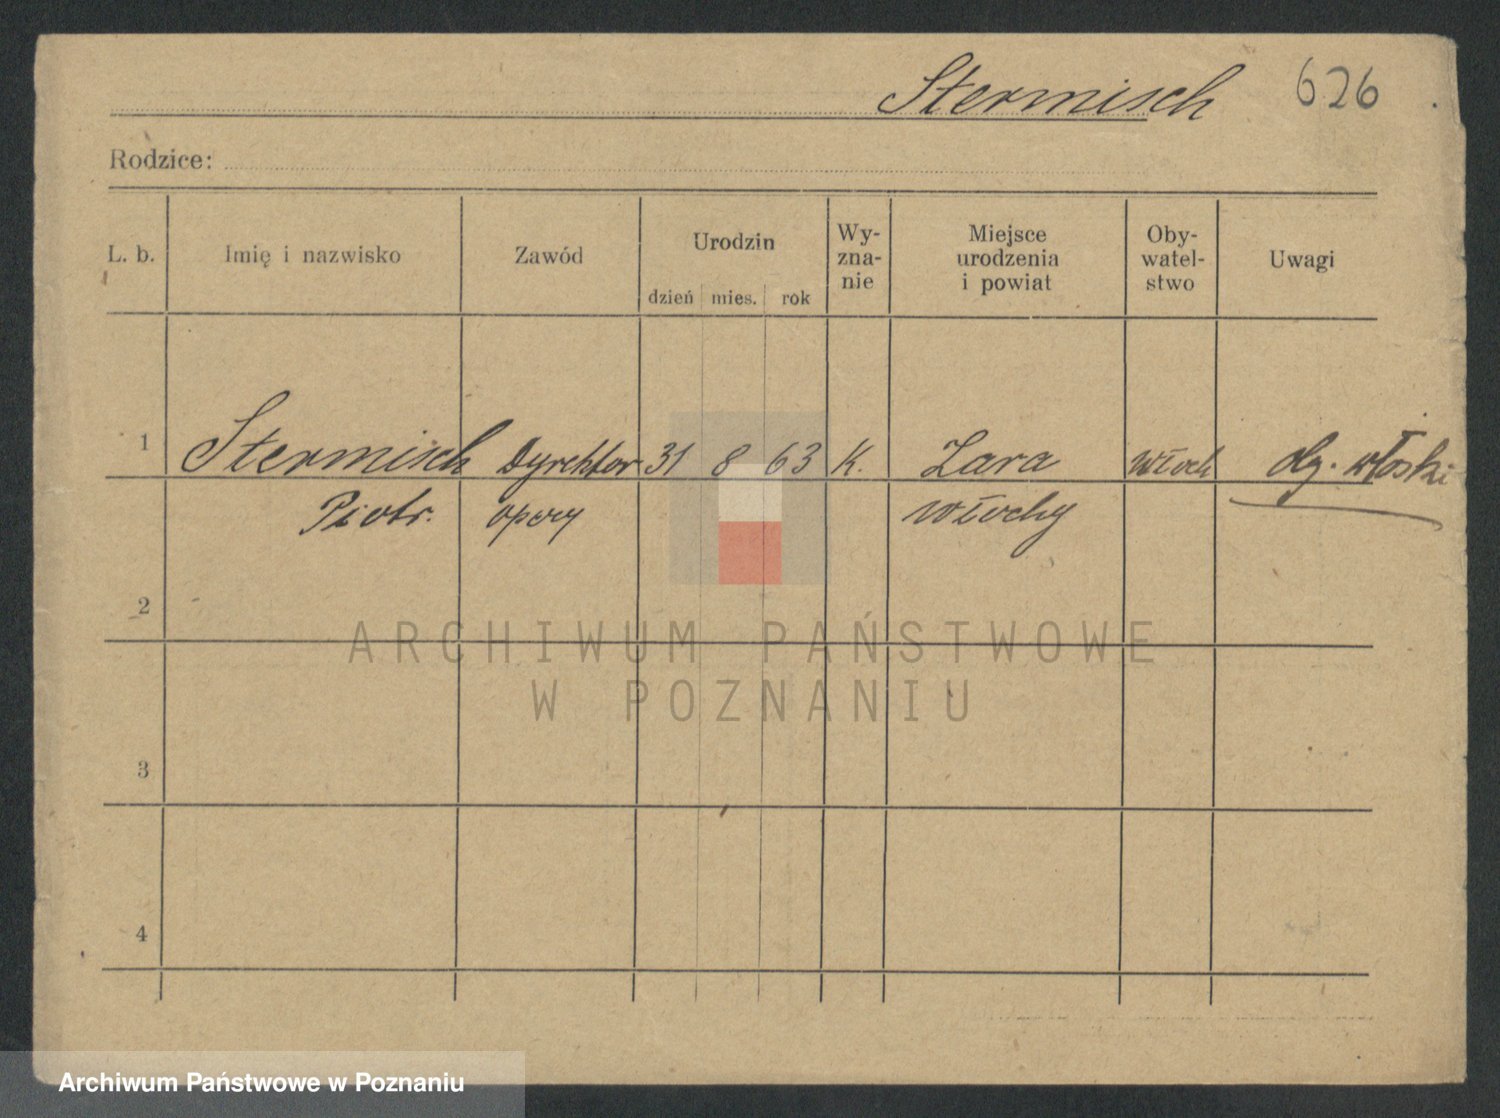 Stermisch 626
Rodzice:
L. b. Imię i nazwisko Zawód Urodzin dzień mies. rok Wy-zna-nie Miejsce urodzenia i powiat Oby-watel-stwo Uwagi
1 Stermisch Dyrektor 31 8 63 K. Zara Włoch włoski
Piotr. opery Włochy
2
ARCHIWUM PAŃSTWOWE
W POZNANIU
3
4
Archiwum Państwowe w Poznaniu